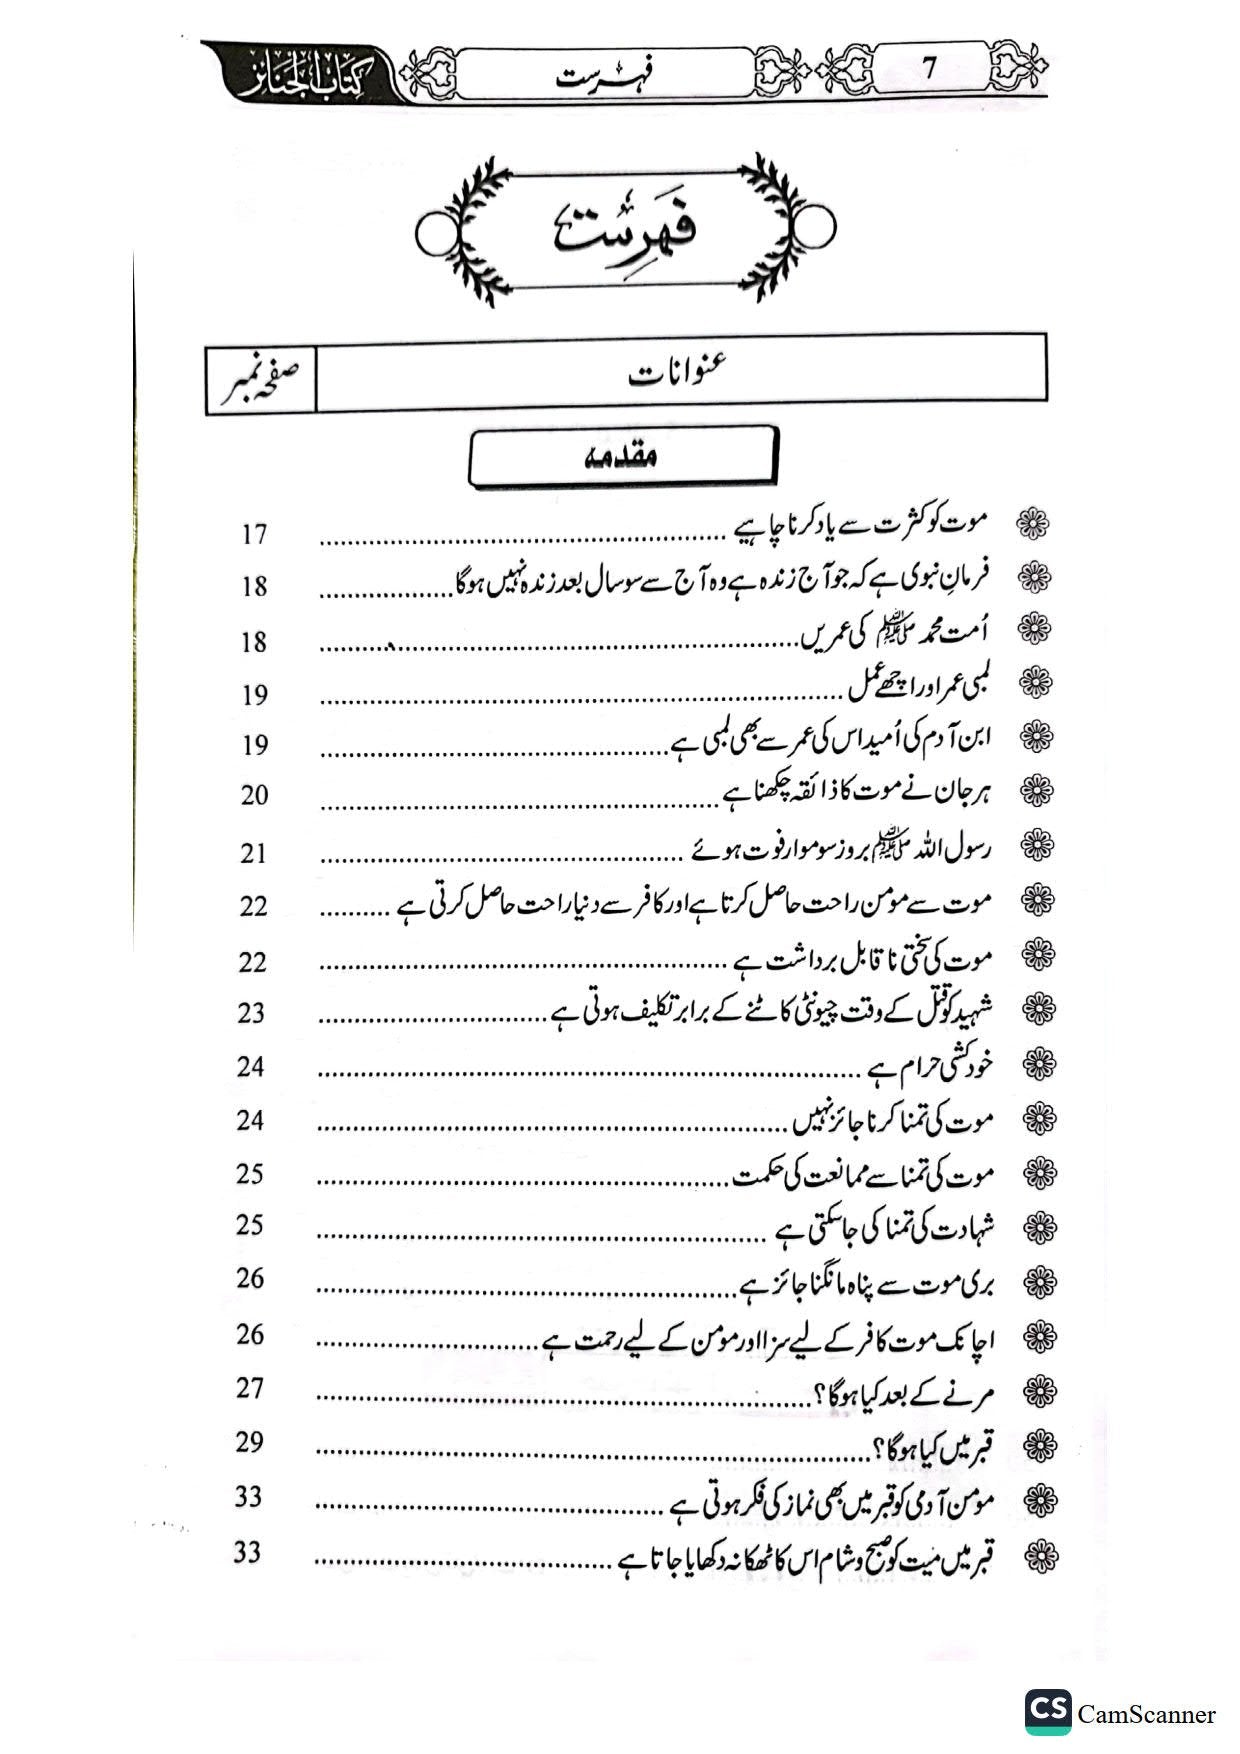 7 فہرست کتاب الجنائز
فہرست
عنوانات صفحہ نمبر
مقدمہ
موت کو کثرت سے یاد کرنا چاہیے ........ 17
فرمانِ نبوی ہے کہ جو آج زندہ ہے وہ آج سے سو سال بعد زندہ نہیں ہوگا ........ 18
اُمت محمد ﷺ کی عمریں ........ 18
لمبی عمر اور اچھے عمل ........ 19
ابن آدم کی اُمید اس کی عمر سے بھی لمبی ہے ........ 19
ہر جان نے موت کا ذائقہ چکھنا ہے ........ 20
رسول اللہ ﷺ بروز سوموار فوت ہوئے ........ 21
موت سے مومن راحت حاصل کرتا ہے اور کافر سے دنیا راحت حاصل کرتی ہے ........ 22
موت کی سختی ناقابل برداشت ہے ........ 22
شہید کو قتل کے وقت چیونٹی کاٹنے کے برابر تکلیف ہوتی ہے ........ 23
خودکشی حرام ہے ........ 24
موت کی تمنا کرنا جائز نہیں ........ 24
موت کی تمنا سے ممانعت کی حکمت ........ 25
شہادت کی تمنا کی جا سکتی ہے ........ 25
بری موت سے پناہ مانگنا جائز ہے ........ 26
اچانک موت کافر کے لیے سزا اور مومن کے لیے رحمت ہے ........ 26
مرنے کے بعد کیا ہوگا؟ ........ 27
قبر میں کیا ہوگا؟ ........ 29
مومن آدمی کو قبر میں بھی نماز کی فکر ہوتی ہے ........ 33
قبر میں میت کو صبح و شام اس کا ٹھکانہ دکھایا جاتا ہے ........ 33
CS CamScanner